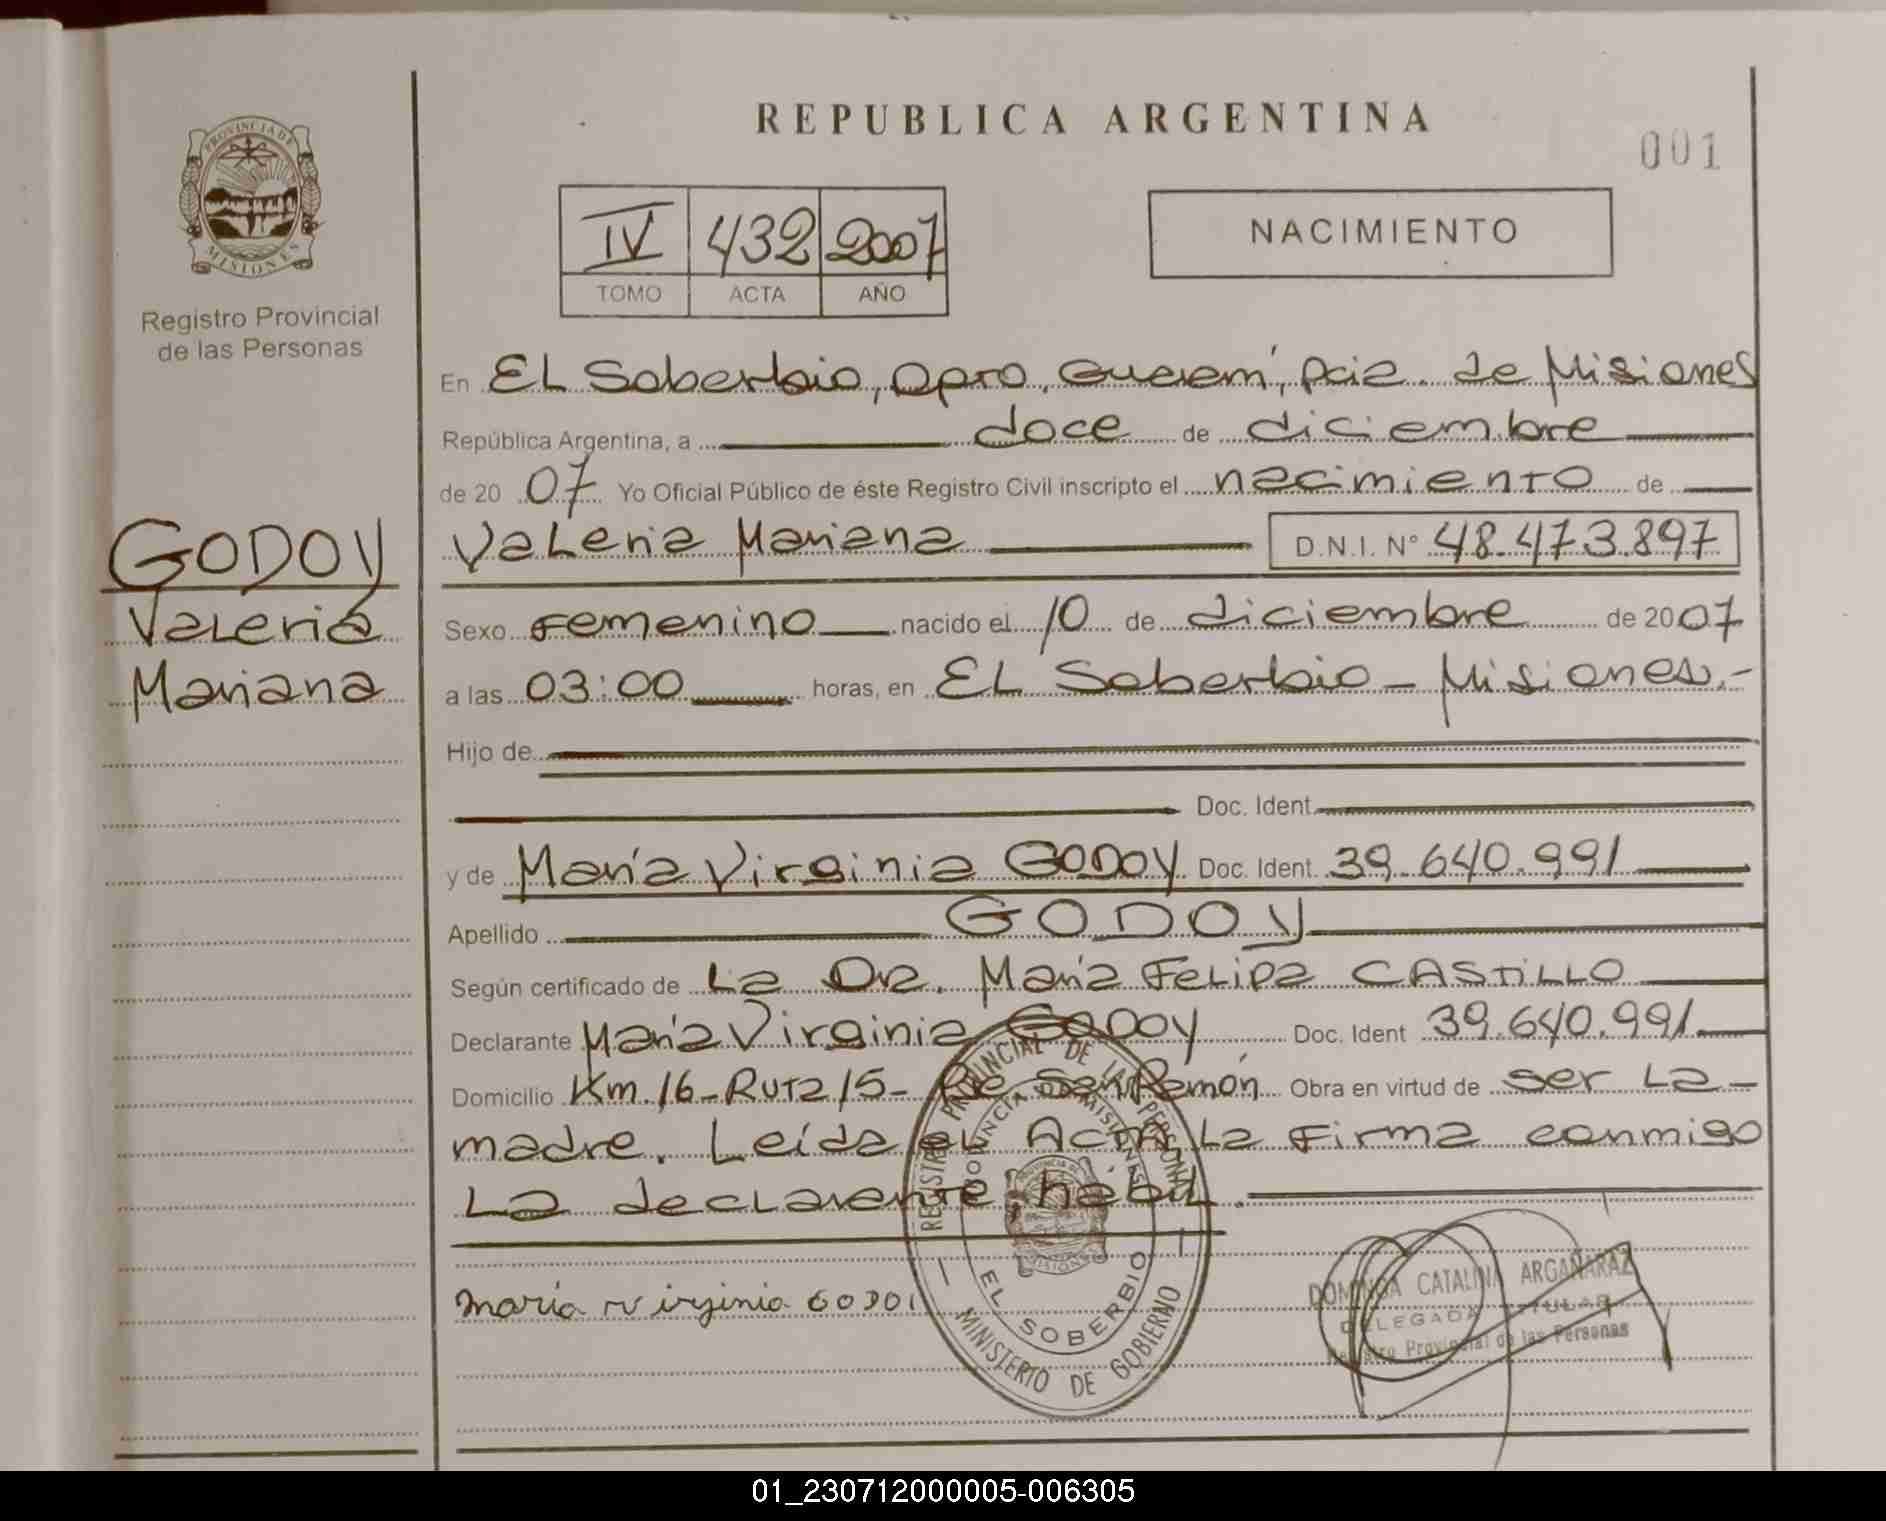 REPUBLICA ARGENTINA
001
PROVINCIA DE
MISIONES
Registro Provincial
de las Personas
IV 432 2007
TOMO ACTA AÑO
NACIMIENTO
En EL Soberbio, Dpto. Guaraní, pcia. de Misiones
República Argentina, a doce de diciembre
de 2007 Yo Oficial Público de éste Registro Civil inscripto el nacimiento de
GODOY
Valeria Mariana D.N.I. N° 48.473.897
Valeria
Sexo Femenino nacido el 10 de diciembre de 2007
Mariana
a las 03:00 horas, en EL Soberbio - Misiones.-
Hijo de
Doc. Ident.
y de María Virginia GODOY Doc. Ident. 39.640.991
Apellido GODOY
Según certificado de La Dra. María Felipa CASTILLO
Declarante María Virginia GODOY Doc. Ident 39.640.991
Domicilio Km.16-Ruta 15- Pje San Ramón Obra en virtud de ser La
madre. Leída el Acta La Firma conmigo
La declarante, hábil.
REGISTRO PROVINCIAL DE LAS PERSONAS
PROVINCIA DE MISIONES
EL SOBERBIO
MINISTERIO DE GOBIERNO
maría virginia GODOI
DOMINGA CATALINA ARGAÑARAZ
DELEGADA TITULAR
Registro Provincial de las Personas
01_230712000005-006305